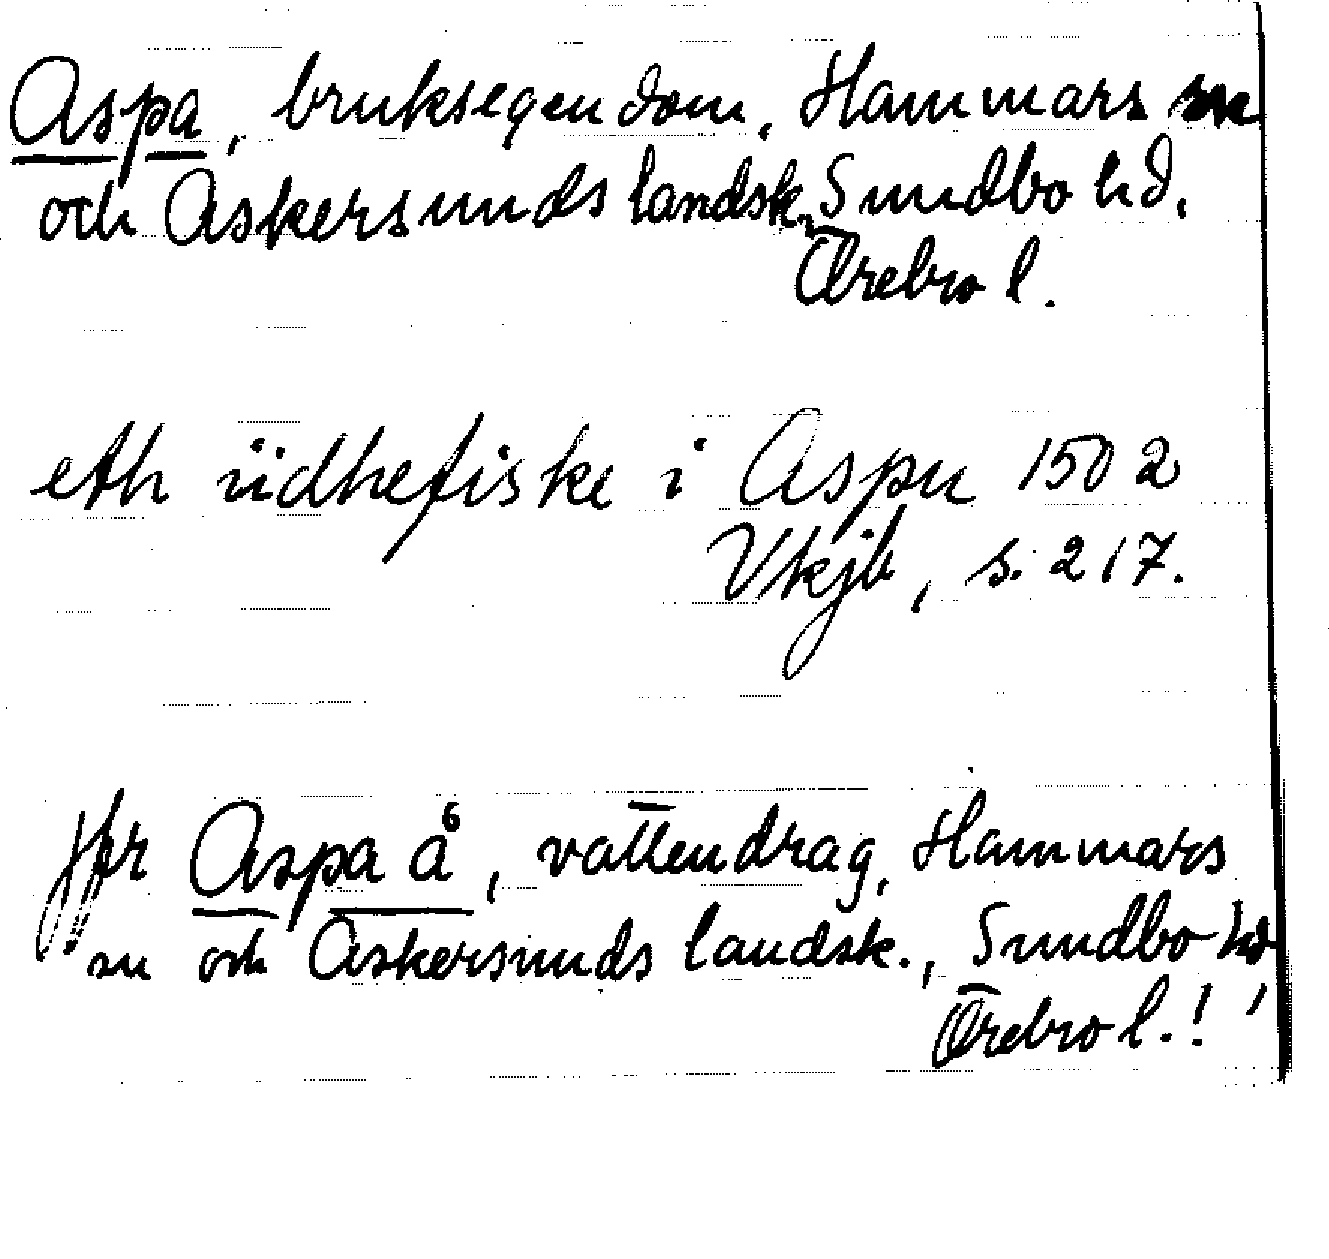 Aspa, bruksegendom, Hammars sn
och Askersunds landsk, Sundbo hd,
Örebro l.
eth iidhefiske i Aspu 1502
Vkjb, s. 217.
Jfr Aspa å, vattendrag, Hammars
sn och Askersunds landsk., Sundbo hd,
Örebro l.!